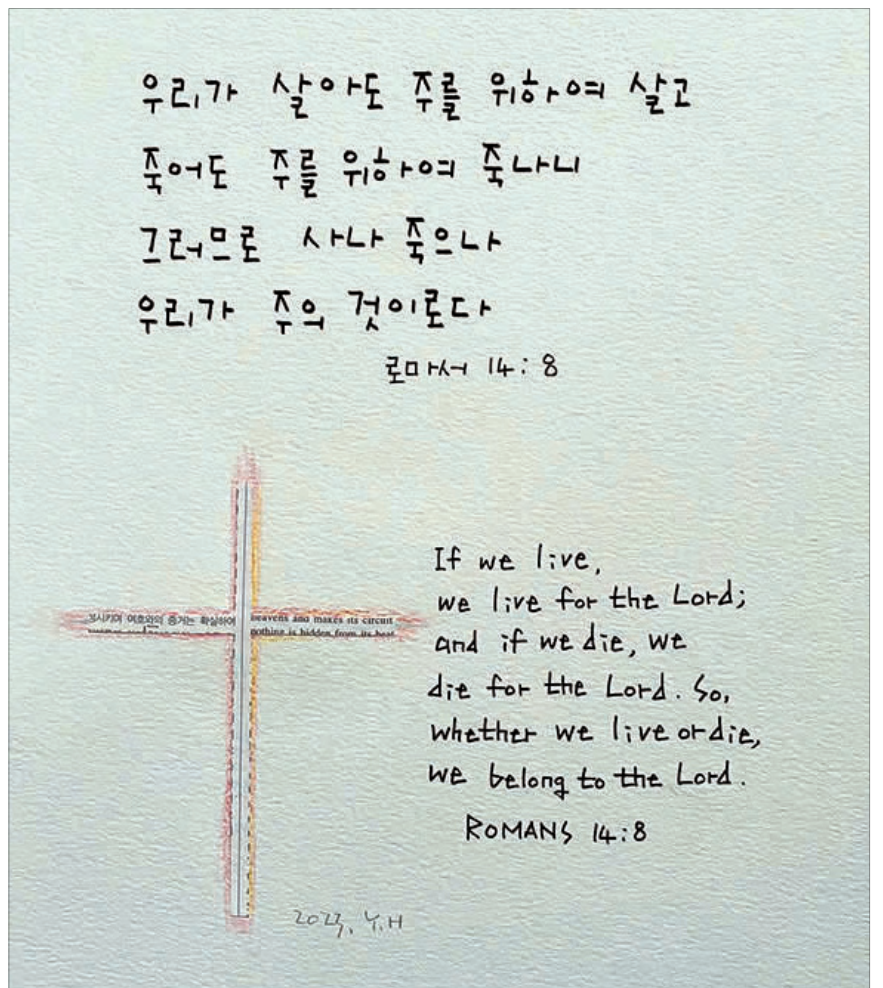 우리가 살아도 주를 위하여 살고
죽어도 주를 위하여 죽나니
그러므로 사나 죽으나
우리가 주의 것이로다
로마서 14:8
시키며 여호와의 증거는 확실하여
heavens and makes its circuit
nothing is hidden from its heat
If we live,
we live for the Lord;
and if we die, we
die for the Lord. So,
whether we live or die,
we belong to the Lord.
ROMANS 14:8
2023, Y.H